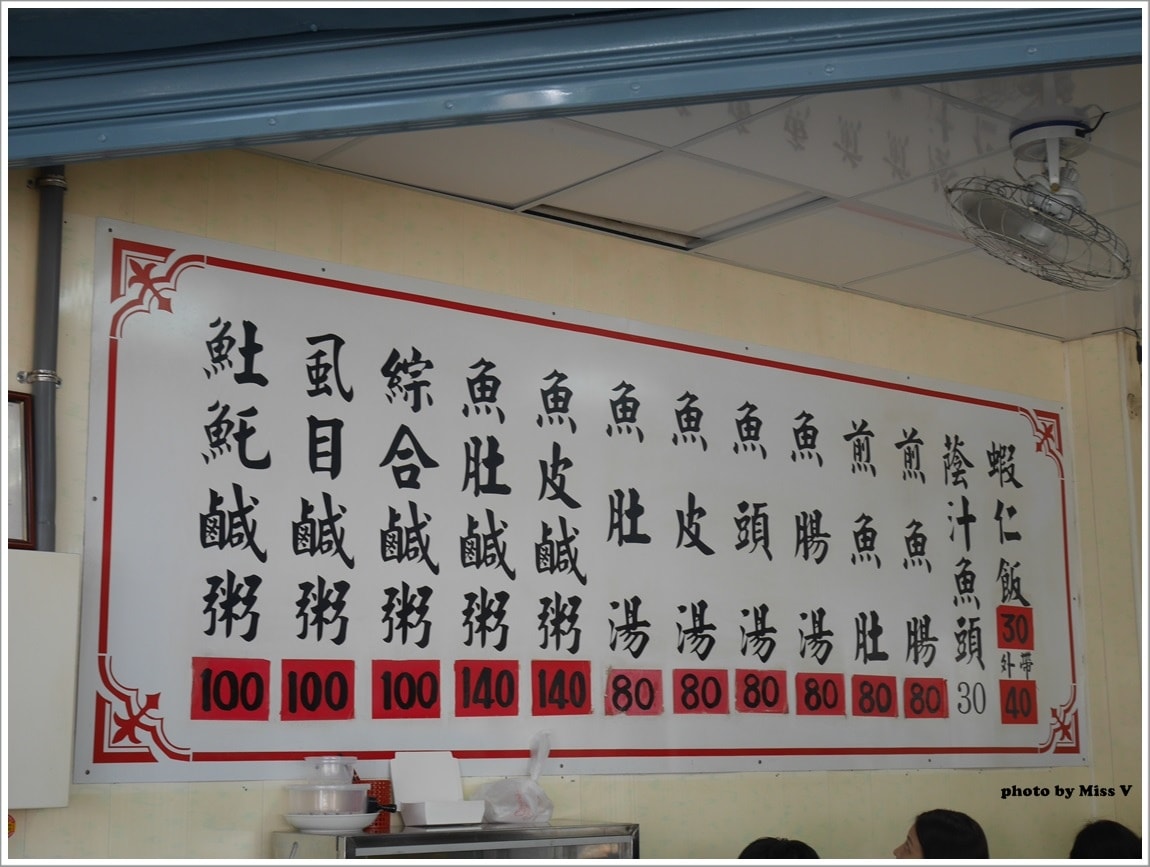 魠魠鹹粥 100
虱目鹹粥 100
綜合鹹粥 100
魚肚鹹粥 140
魚皮鹹粥 140
魚肚湯 80
魚皮湯 80
魚頭湯 80
魚腸湯 80
煎魚肚 80
煎魚腸 80
蔭汁魚頭 30
蝦仁飯 30
外帶 40
photo by Miss V